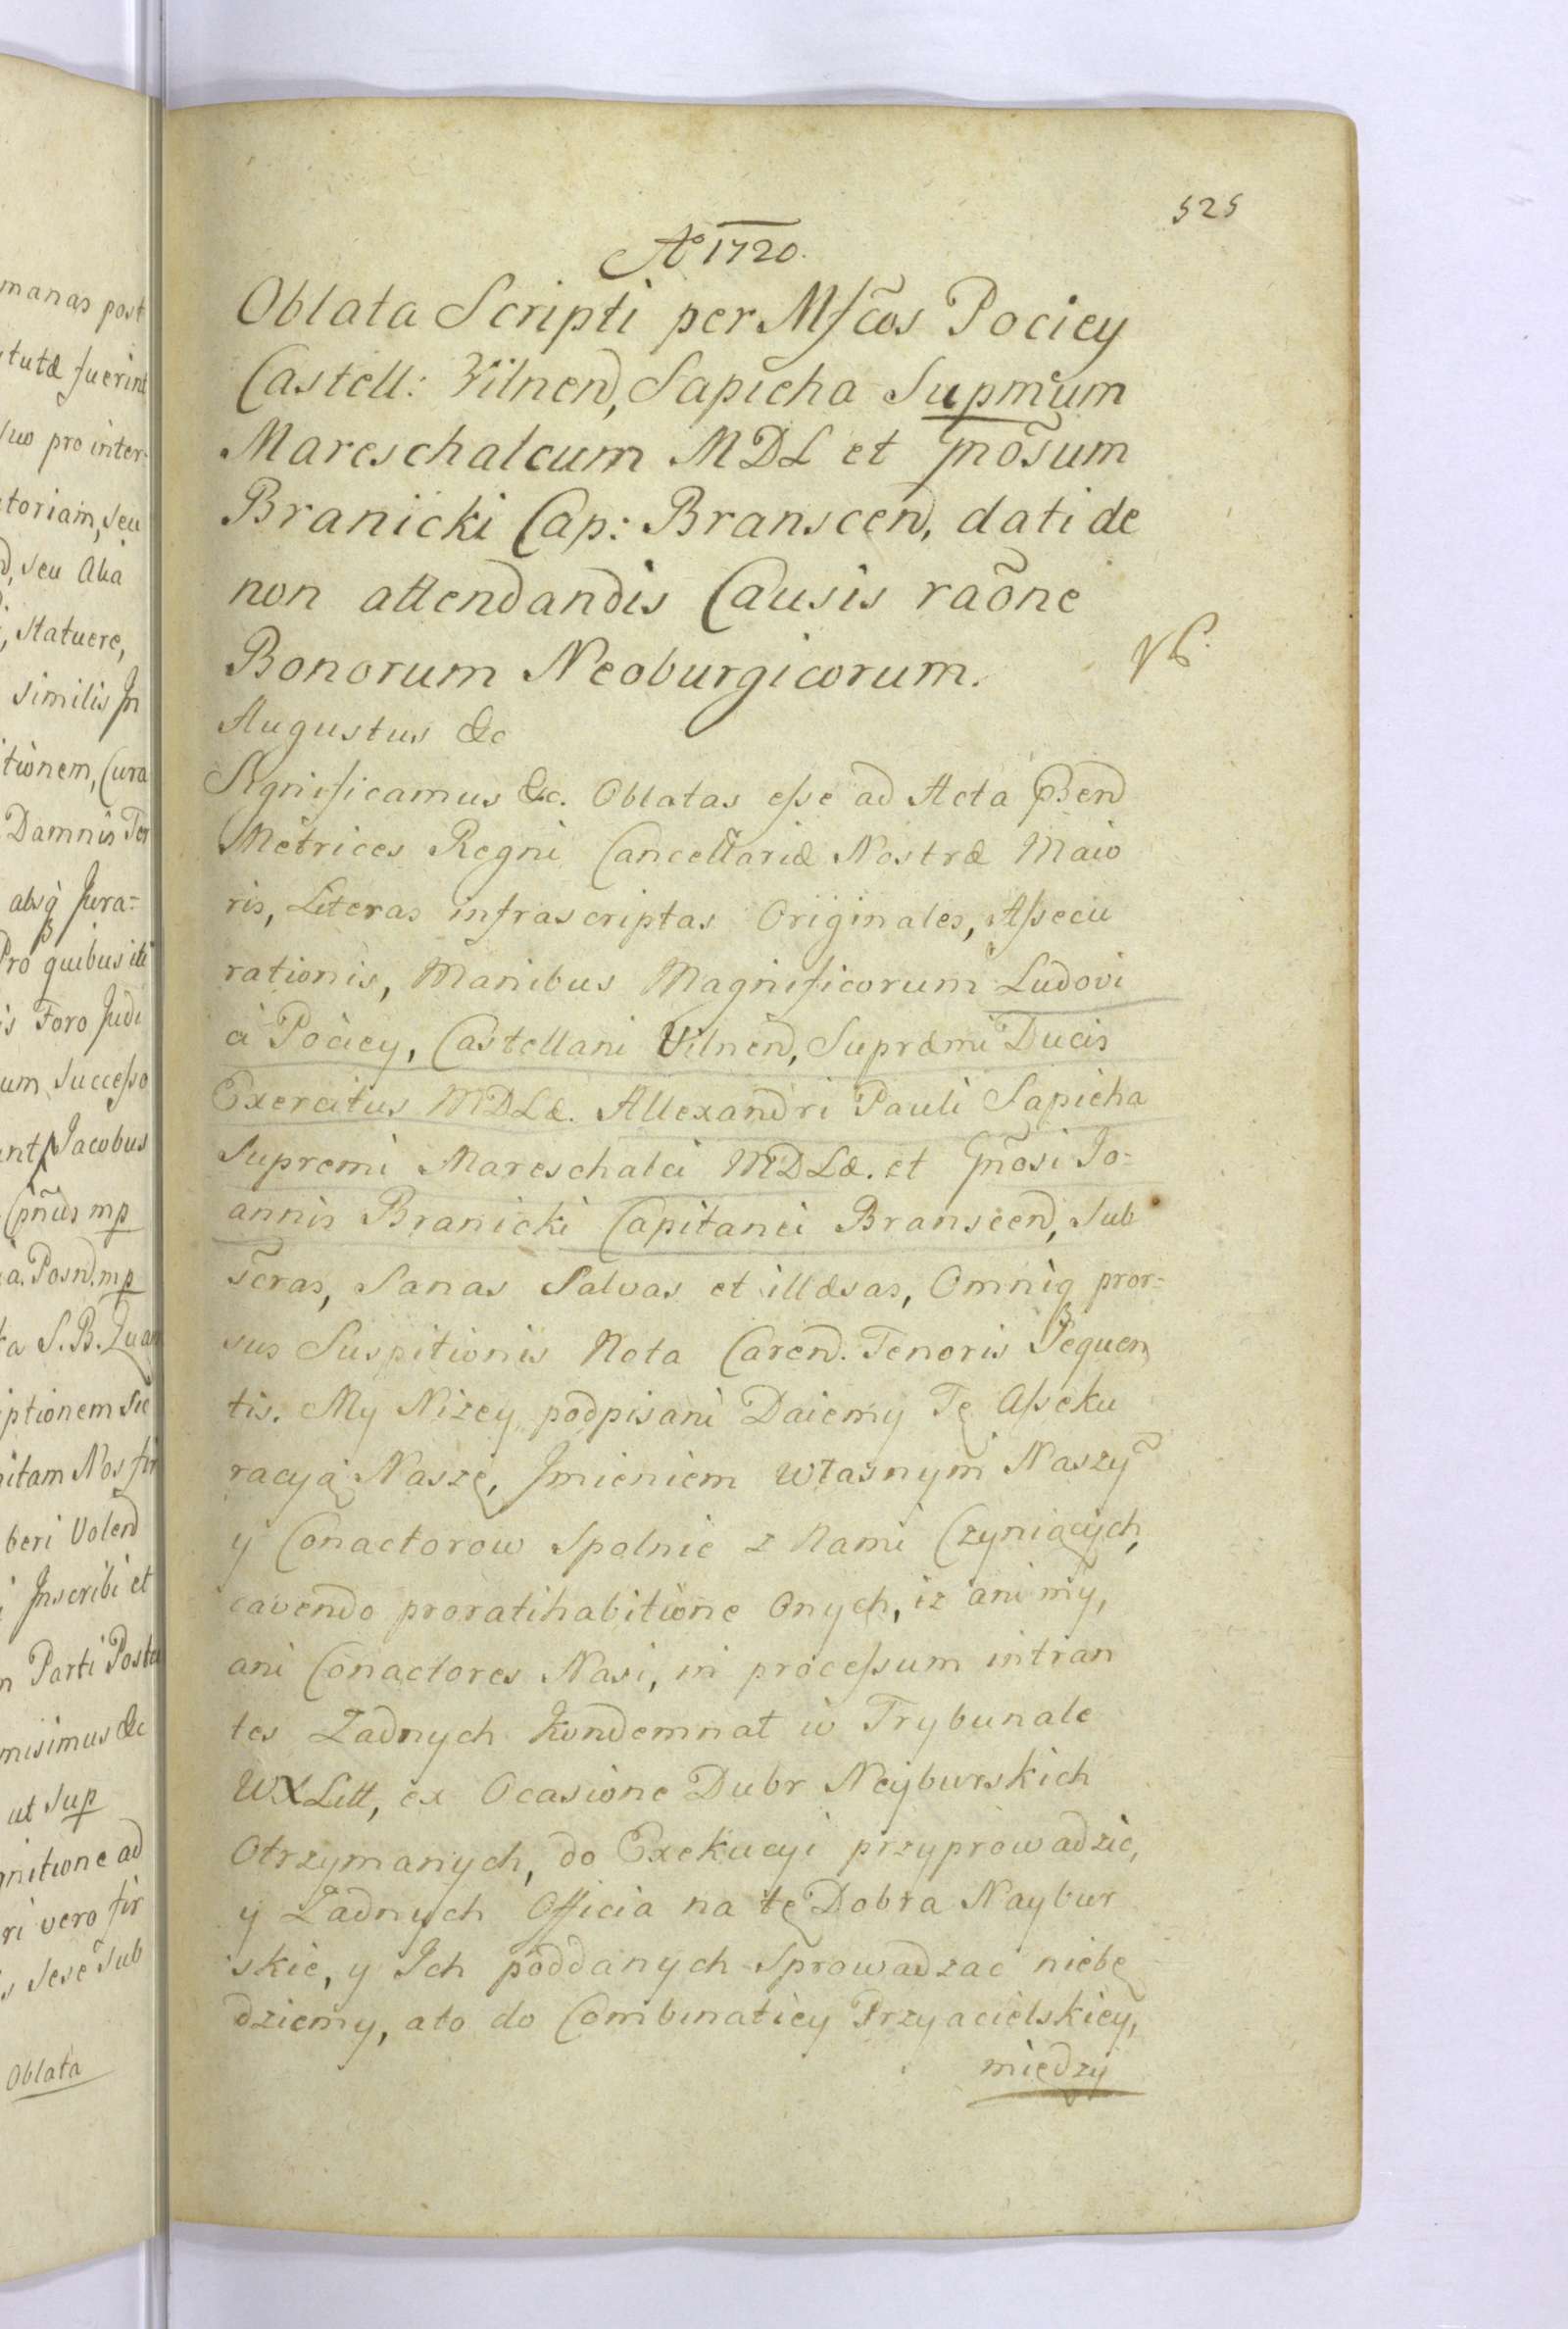 manas post
tutæ fuerint
suo pro inter-
toriam, seu
seu Alia
, Statuere,
similis In
tionem, Cura
Damnis Ter
absq Jura=
Pro quibus iti
is Foro Judi
um Successo
nt Jacobus
Cpnûs mp
a. Posnd. mp
a S. B. Quam
iptionem sic
itam Nos fir
beri Volend
Inscribi et
n Parti Postu
misimus &c
ut sup
gnitione ad
ri vero fir
s sese sub
Oblata
525
Aº 1720.
Oblata Scripti per Mfcos Pociey
Castell: Vilnend, Sapieha Supmum
Mareschalcum MDL et Gnosum
Branicki Cap: Branscend, dati de
non attendandis Causis raõne
Bonorum Neoburgicorum.
Augustus &c
Significamus &c. Oblatas esse ad Acta Pend
Metrices Regni Cancellariæ Nostræ Maio
ris, Literas infrascriptas Originales, Assecu
rationis, Manibus Magnificorum Ludovi
ci Pociey, Castellani Vilnend, Supræmi Ducis
Exercitus MDLæ. Allexandri Pauli Sapieha
Supremi Mareschalci MDLæ. et Gnõsi Jo=
annis Branicki Capitanei Branscend, Sub
scras, Sanas Salvas et illæsas, Omniq pror=
sus Suspitionis Nota Carend. Tenoris Sequen
tis. My Nizey podpisani Daiemy Tę Asseku
racyą Naszę, Jmieniem własnym Naszỹ
y Conactorow Spolnie z Nami Czyniących,
cavendo proratihabitione Onych, iz ani my,
ani Conactores Nasi, in processum intran
tes Zadnych Kondemnat w Trybunale
WXLitt, ex Ocasione Dubr Neyburskich
Otrzymanych, do Exekucyi przyprowadzic,
y Zadnych Officia na tę Dobra Naybur
skie, y Ich poddanych Sprowadzac niebę
dziemy, ato do Combinatiey Przyacielskiey,
między